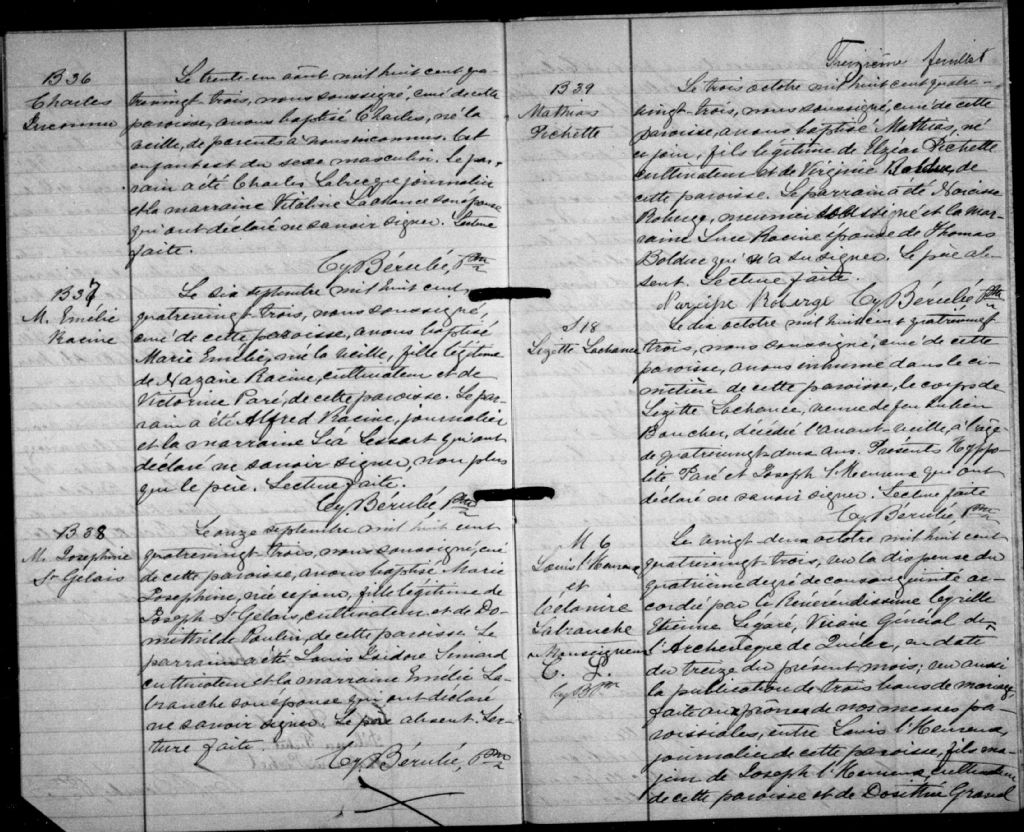 B 36
Charles
Inconnu
Le trente-un août mil huit cent qua-
trevingt-trois, nous soussigné, curé de cette
paroisse, avons baptisé Charles, né la
veille, de parents à nous inconnus. Cet
enfant est du sexe masculin. Le par-
rain a été Charles Labrecque journalier
et la marraine Vitaline Lachance son épouse
qui ont déclaré ne savoir signer. Lecture
faite.
Cy. Bérubé, Ptre
B 37
M. Emélie
Racine
Le six septembre mil huit cent
quatrevingt-trois, nous soussigné,
curé de cette paroisse, avons baptisé
Marie Emélie, née la veille, fille légitime
de Nazaire Racine, cultivateur et de
Victorine Paré, de cette paroisse. Le par-
rain a été Alfred Racine, journalier
et la marraine Léa Lessart qui ont
déclaré ne savoir signer, non plus
que le père. Lecture faite.
Cy. Bérubé, Ptre
B 38
M. Josephine
St Gelais
Le onze septembre mil huit cent
quatrevingt-trois, nous soussigné, curé
de cette paroisse, avons baptisé Marie
Josephine, née ce jour, fille légitime de
Joseph St Gelais, cultivateur et de Do-
mithilde Poulin, de cette paroisse. Le
parrain a été Louis Isidore Simard
cultivateur et la marraine Emélie La-
branche son épouse qui ont déclaré
ne savoir signer. Le père absent. Lec-
ture faite.
Cy. Bérubé, Ptre
Treizième feuillet
B 39
Mathias
Pichette
Le trois octobre mil huit cent quatre-
vingt-trois, nous soussigné, curé de cette
paroisse, avons baptisé Mathias, né
ce jour, fils légitime de Elzéar Pichette
cultivateur et de Virginie Bolduc, de
cette paroisse. Le parrain a été Narcisse
Roberge, meunier soussigné et la mar-
raine Luce Racine épouse de Thomas
Bolduc qui n'a su signer. Le père ab-
sent. Lecture faite.
Narcisse Roberge Cy. Bérubé Ptre
S 18
Lizette Lachance
Le dix octobre mil huit cent quatrevingt-
trois, nous soussigné, curé de cette
paroisse, avons inhumé dans le ci-
metière de cette paroisse, le corps de
Lizette Lachance, veuve de feu Julien
Boucher, décédée l'avant-veille, à l'âge
de quatrevingt-deux ans. Présents Hyppo-
lite Paré et Joseph l'Heureux qui ont
déclaré ne savoir signer. Lecture faite
Cy. Bérubé, Ptre
M 6
Louis l'Heureux
et
Vélanire
Labranche
Monseigneur
C. L.
Cy B Ptre
Le vingt-deux octobre mil huit cent
quatrevingt-trois, vu la dispense du
quatrième degré de consanguinité ac-
cordée par le Révérendissime Cyrille
Etienne Légaré, Vicaire Général de
l'Archevêque de Québec, en date
du treize du présent mois; vu aussi
la publication de trois bans de mariage,
faite aux prônes de nos messes pa-
roissiales, entre Louis l'Heureux,
journalier de cette paroisse, fils ma-
jeur de Joseph l'Heureux, cultivateur
de cette paroisse et de Dosithée Gravel